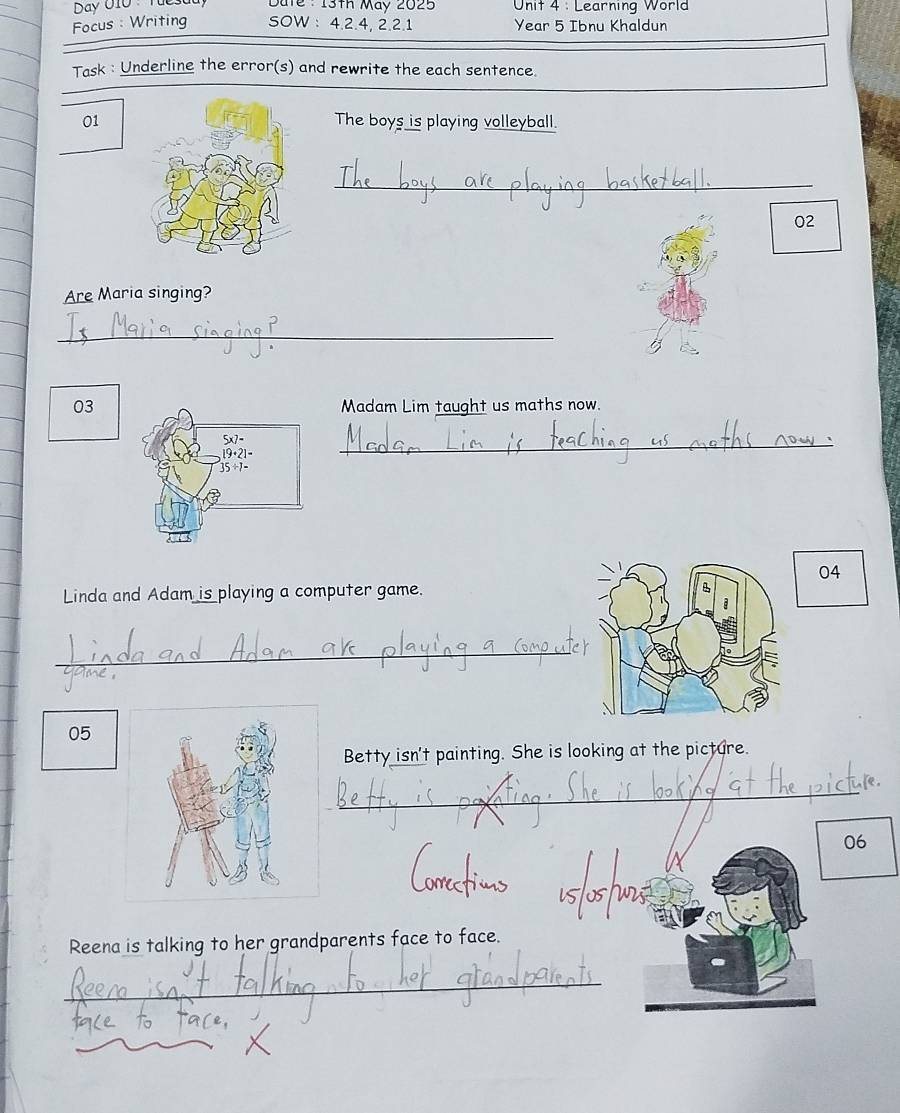 Day 010 : Tuesday
Date : 13th May 2025
Unit 4 : Learning World
Focus : Writing
SOW : 4.2.4, 2.2.1
Year 5 Ibnu Khaldun
Task : Underline the error(s) and rewrite the each sentence.
01
The boys is playing volleyball.
The boys are playing basketball.
02
Are Maria singing?
Is Maria singing?
03
Madam Lim taught us maths now.
5x7=
19+21=
35÷7=
Madam Lim is teaching us maths now.
04
Linda and Adam is playing a computer game.
Linda and Adam are playing a computer
game.
05
Betty isn't painting. She is looking at the picture.
Betty is painting. She is looking at the picture.
06
Corrections 15/05/2025
Reena is talking to her grandparents face to face.
Reena isn't talking to her grandparents
face to face.